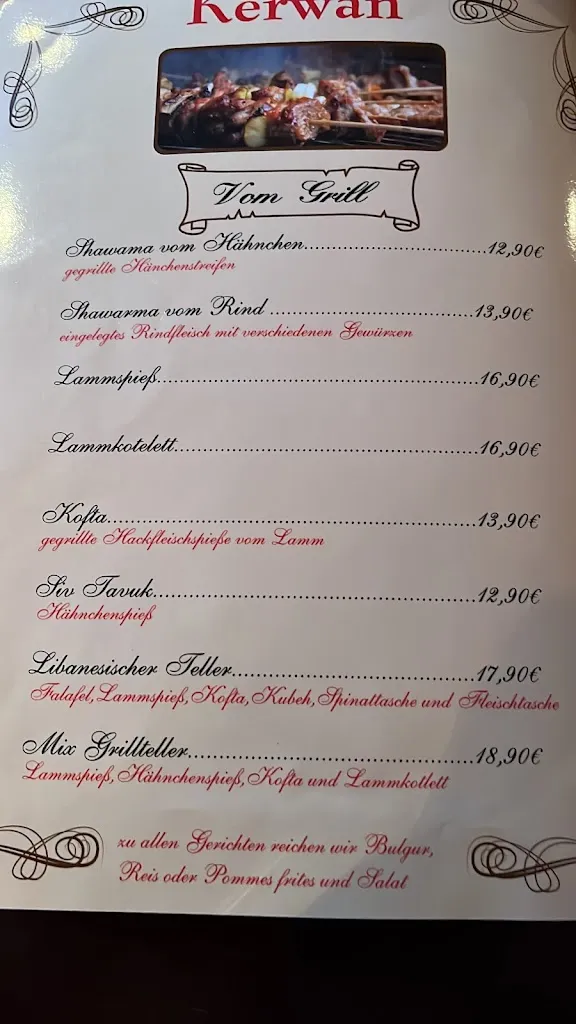 Kerwan
Vom Grill
Shawama vom Hähnchen..........................12,90€
gegrillte Hänchenstreifen
Shawarma vom Rind ..............................13,90€
eingelegtes Rindfleisch mit verschiedenen Gewürzen
Lammspieß................................................16,90€
Lammkotelett.............................................16,90€
Kofta.......................................................13,90€
gegrillte Hackfleischspieße vom Lamm
Siv Tavuk................................................12,90€
Hähnchenspieß
Libanesischer Teller....................................17,90€
Falafel, Lammspieß, Kofta, Kubeh, Spinattasche und Fleischtasche
Mix Grillteller..........................................18,90€
Lammspieß, Hähnchenspieß, Kofta und Lammkotlett
zu allen Gerichten reichen wir Bulgur,
Reis oder Pommes frites und Salat